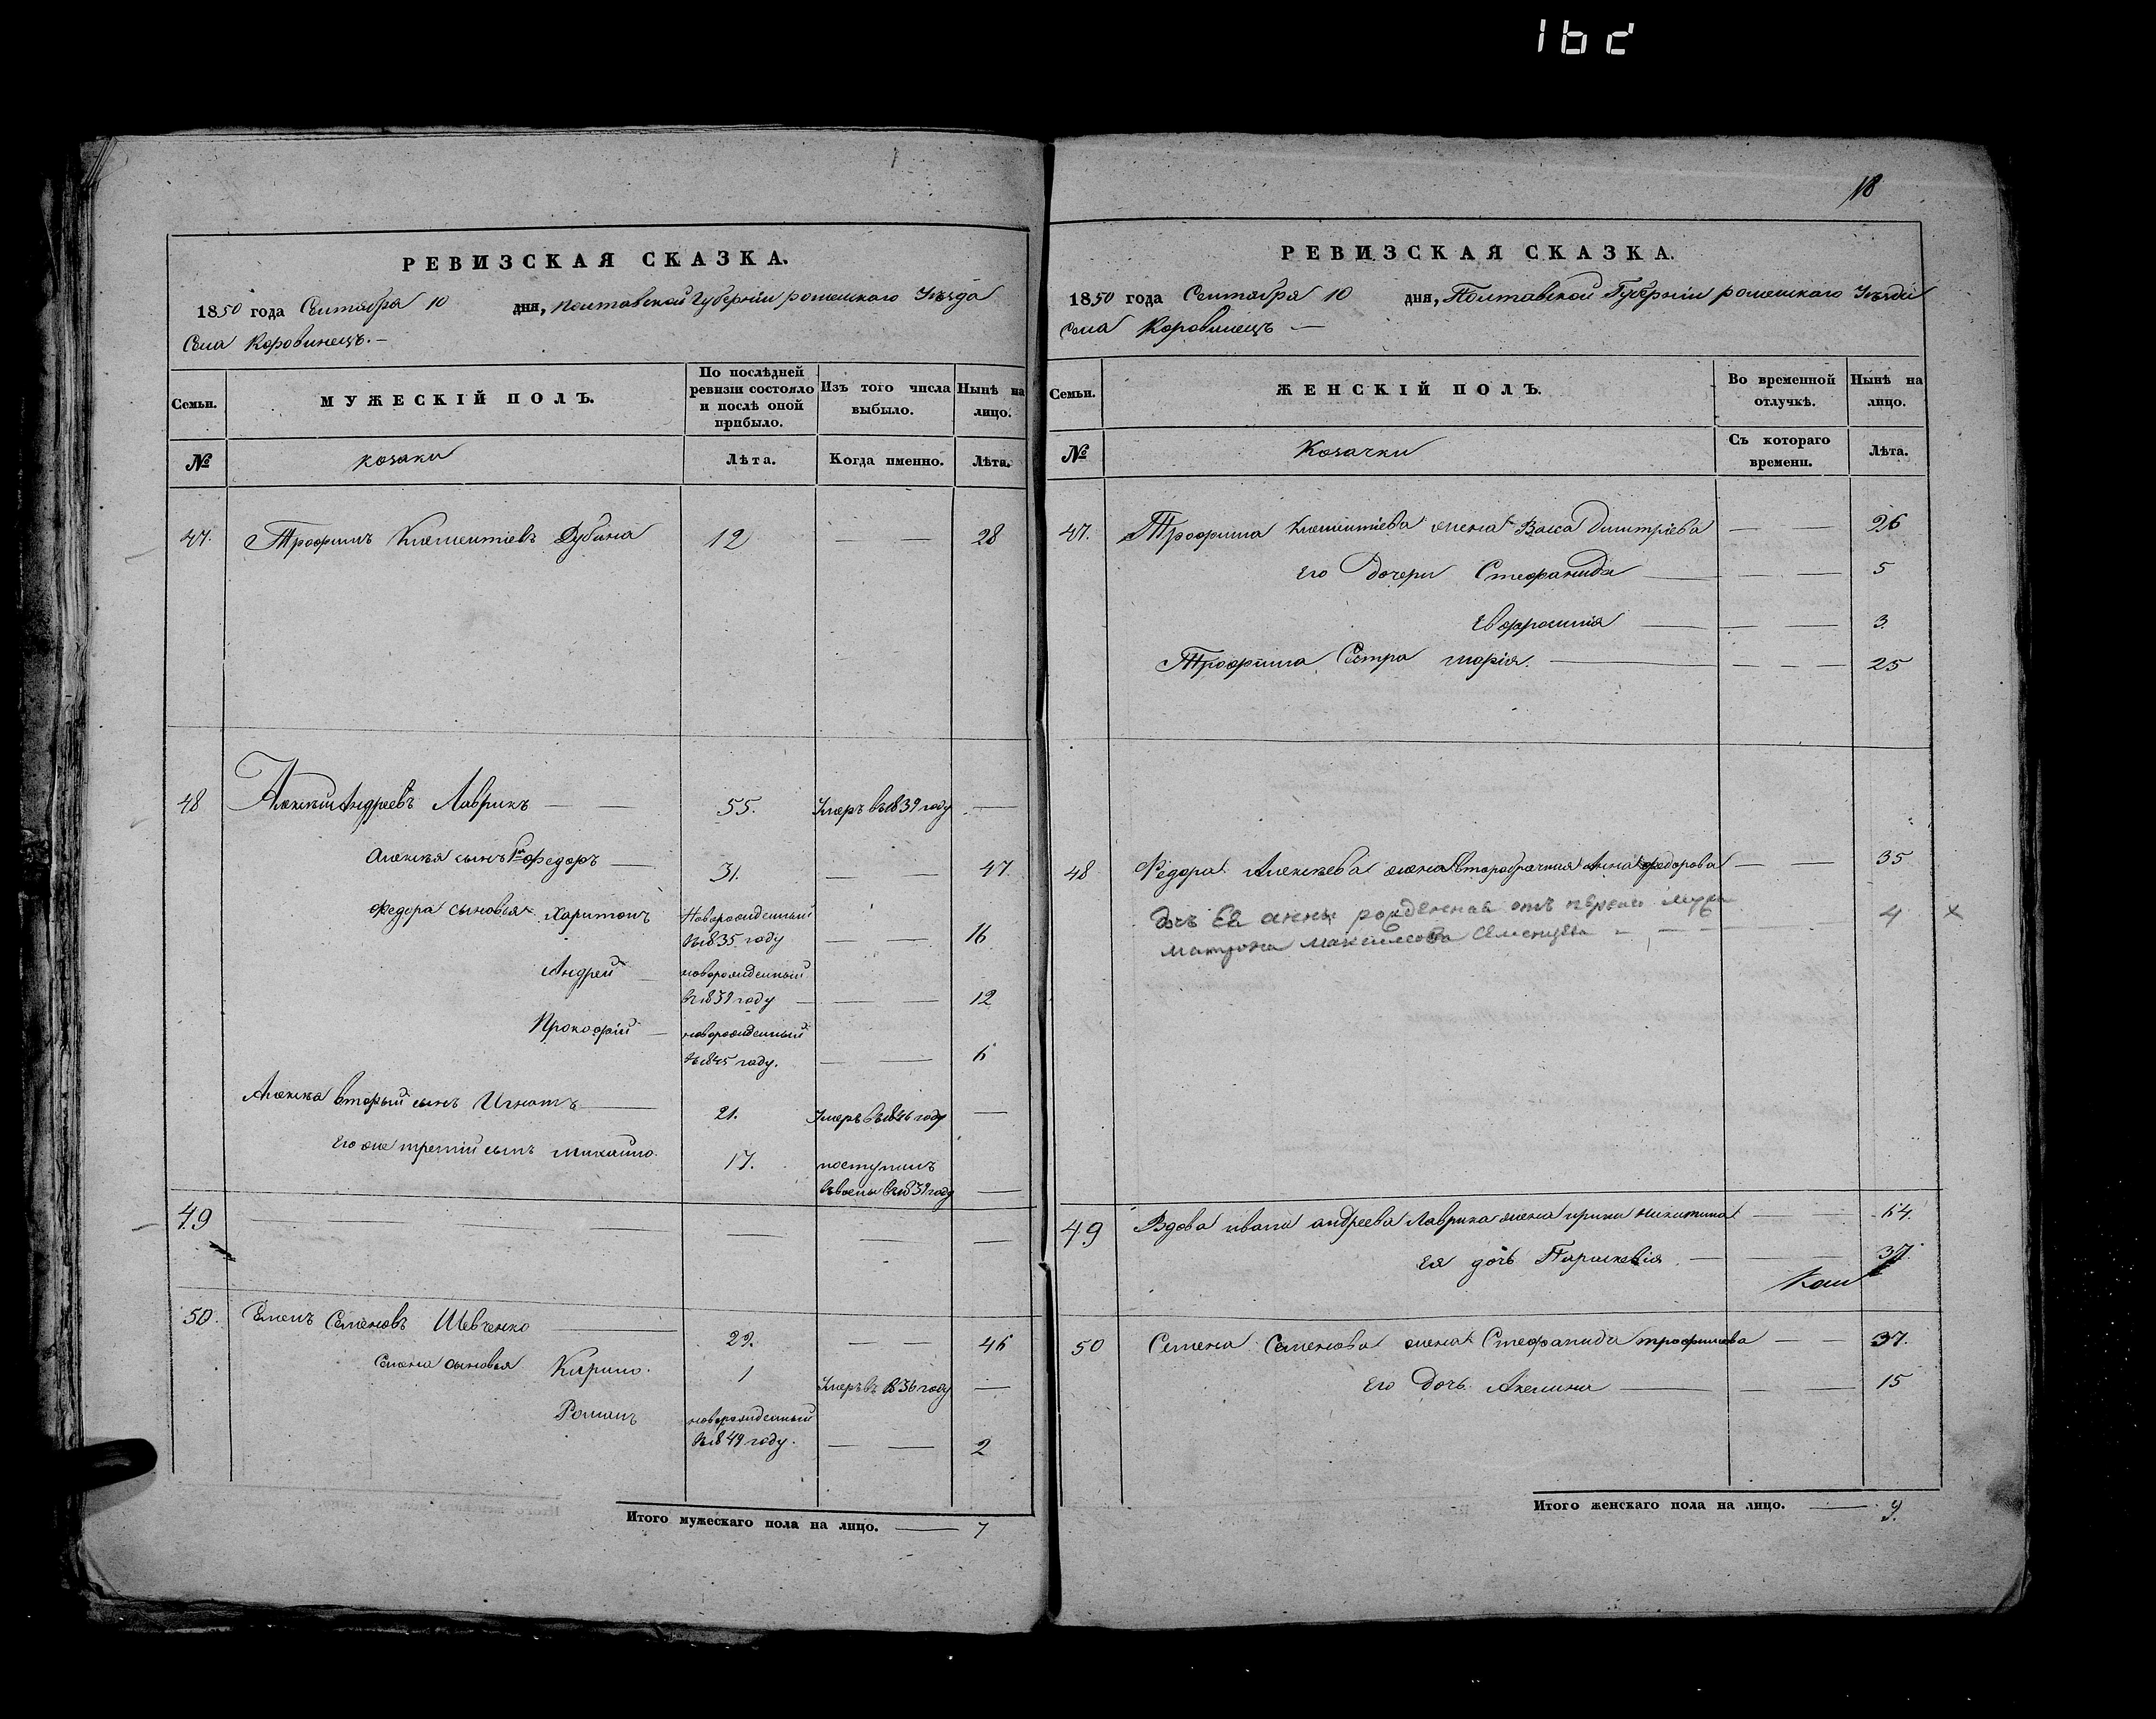 1bd
РЕВИЗСКАЯ СКАЗКА.
1850 года Сентября 10 дня, Полтавской Губерніи роменскаго Уѣзда
Села Коровинецъ. —
Семьи.
МУЖЕСКІЙ ПОЛЪ.
По послѣдней ревизіи состояло и послѣ оной прибыло.
Изъ того числа выбыло.
Нынѣ на лицо.
№
козаки
Лѣта.
Когда именно.
Лѣта.
47. Трофимъ Климентіевъ Дубина 12 — — 28
48 Алексѣй Андреевъ Лаврикъ — — 55. Умеръ въ 1839 году —
Алексѣя сынъ 1й Федоръ — 31. — — 47.
Федора сыновья Харитонъ Новорожденный
въ 1835 году — — 16
Андрей новорожденный
въ 1839 году — — 12
Прокофій — новорожденный
въ 1845 году. — — 6
Алексѣя вторый сынъ Игнатъ — 21. Умеръ въ 1846 году —
Его же третій сынъ михайло. 17. поступилъ
въ 1839 году —
49 — — — — —
50. Семенъ Семеновъ Шевченко — 29. — — 46
Семена сыновья Кирило. 1 Умеръ въ 1836 году —
Романъ новорожденный
въ 1849 году. — — 2
Итого мужескаго пола на лицо. — 7
18
РЕВИЗСКАЯ СКАЗКА.
1850 года Сентября 10 дня, Полтавской Губерніи роменскаго Уѣзда
Села Коровинецъ —
Семьи.
ЖЕНСКІЙ ПОЛЪ.
Во временной отлучкѣ.
Нынѣ на лицо.
№
Козачки
Съ котораго времени.
Лѣта.
47. Трофима Климентіева жена Васса Димитріева — — 26
Его Дочери Стефанида — — — 5
Евфросинія — — — 3.
Трофима Сестра марія. — — — — 25
48 Федора Алексѣева жена второбрачная Анна федорова — — 35
Дчь Ея анны рожденная отъ перваго мужа 4 х
матрона максимова
49 Вдова ивана андреева Лаврика жена ирина никитина — — 64.
Ея дочь Параскевія — — 37.
50 Семена Семенова жена Стефанида трофимова — — 37.
Его Дочь Акелина — — — 15
Итого женскаго пола на лицо. — 9.